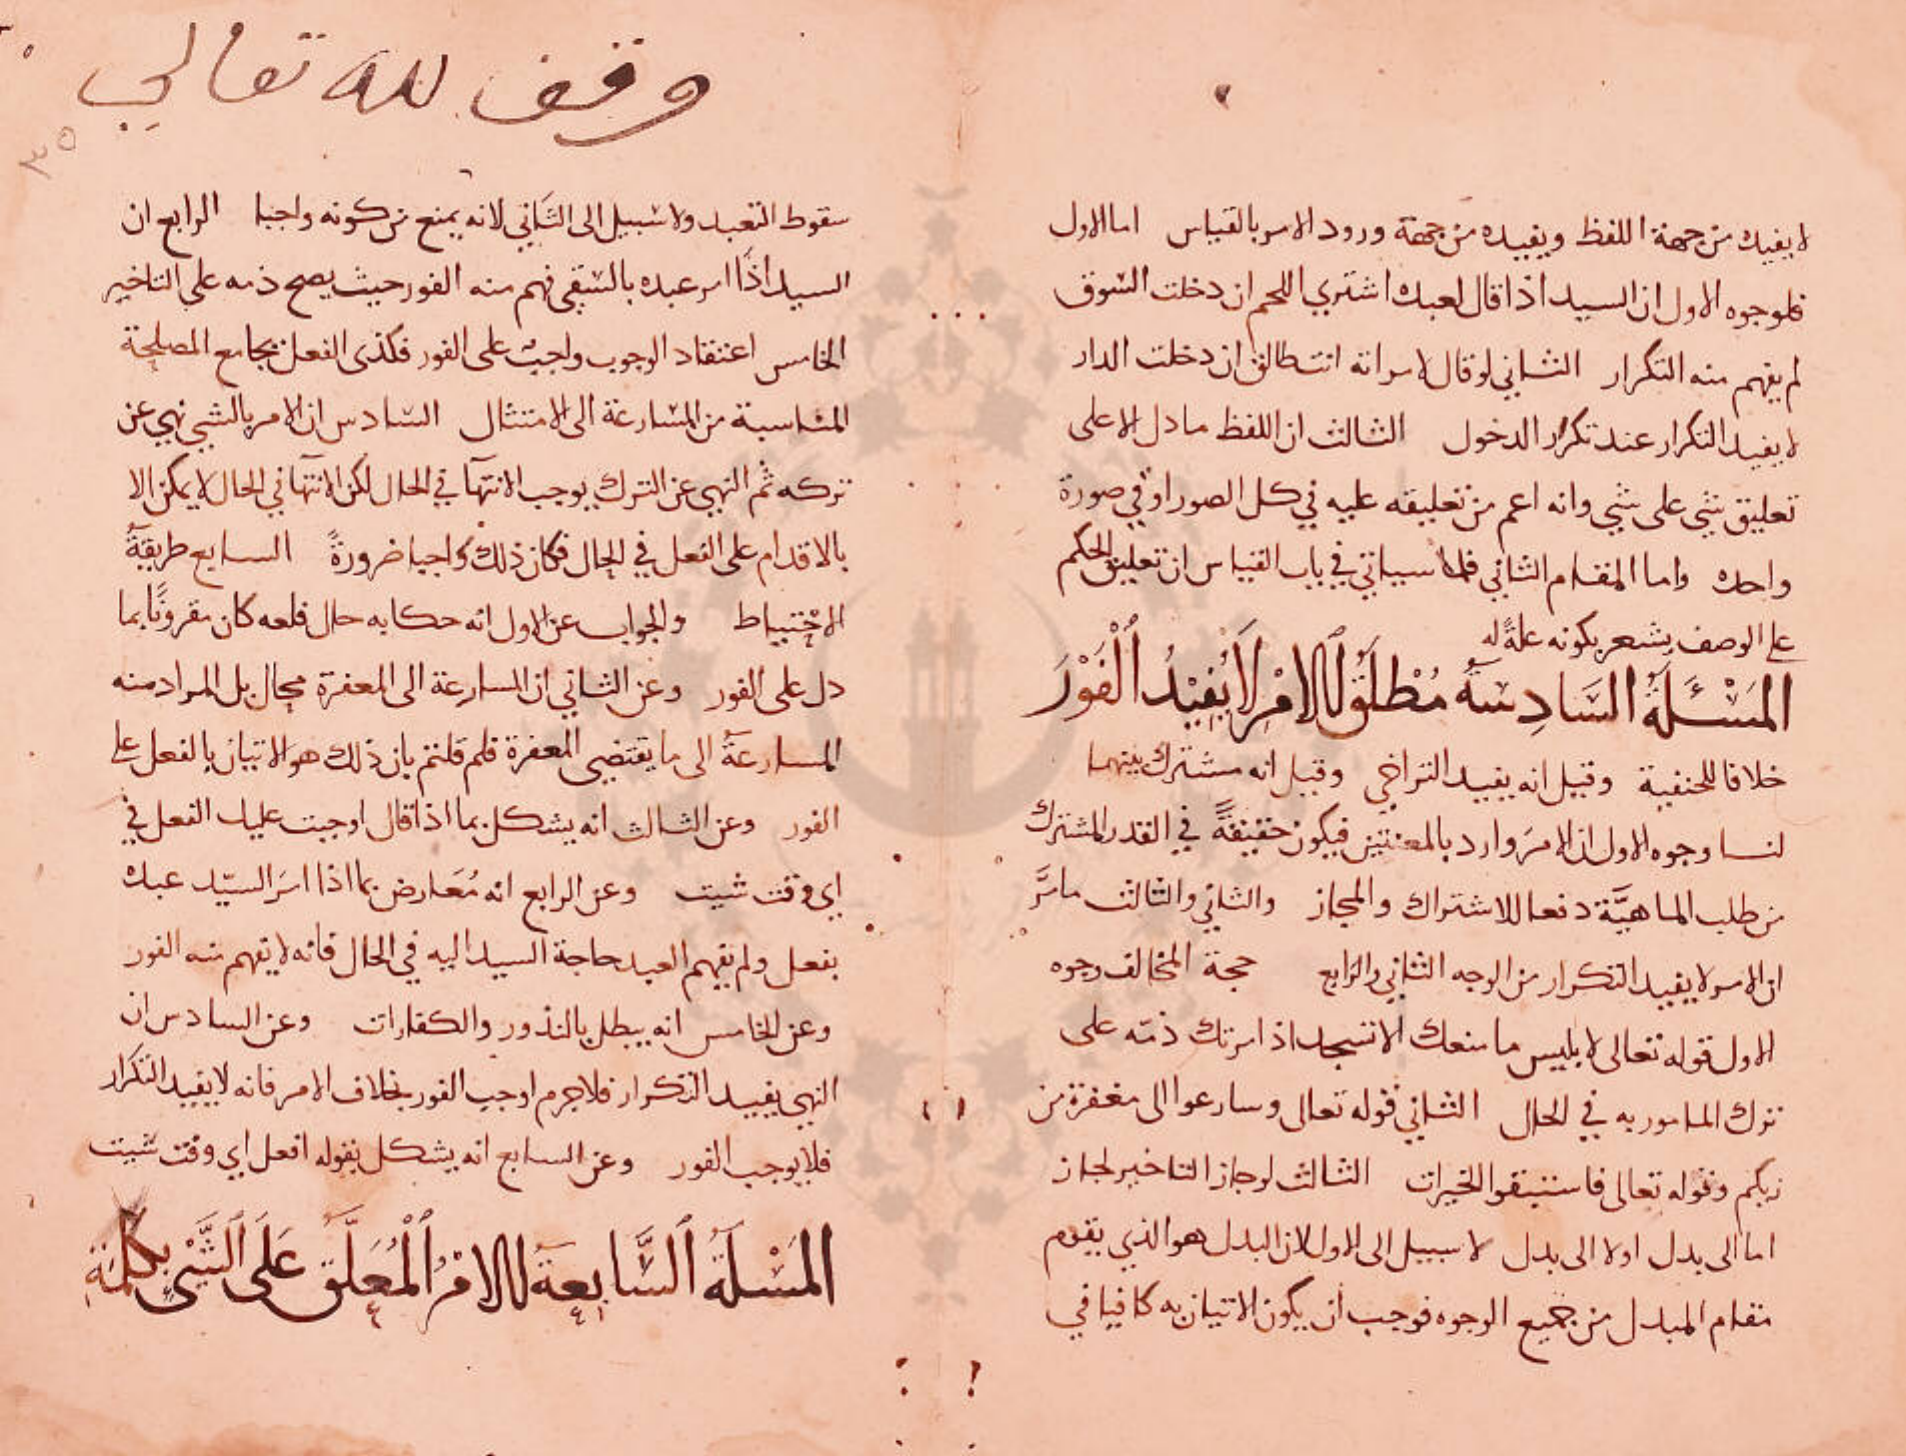 لا يفيده من جهة اللفظ ويفيده من جهة ورود الامر بالقياس اما الاول
فلوجوه الاول ان السيد اذا قال لعبده اشتري اللحم ان دخلت السّوق
لم يفهم منه التكرار الثاني لو قال لامراته انت طالق ان دخلت الدار
لا يفيد التكرار عند تكرار الدخول الثالث ان اللفظ ما دل الا على
تعليق شي على شي وانه اعم من تعليقه عليه في كل الصور او في صورة
واحده واما المقام الثاني فلما سياتي في باب القياس ان تعليق الحكم
على الوصف يشعر بكونه علةً له
المَسْئَلَةُ السَّادِسَةُ مُطْلَقُ الامْرِ لَا يُفِيْدُ الْفَوْرَ
خلافا للحنفية وقيل انه يفيد التراخي وقيل انه مشترك بينهما
لنا وجوه الاول ان الامرَ وارد بالمعنيين فيكون حقيقةً في القدر المشترك
من طلب الماهيَّة دفعا للاشتراك والمجاز والثاني والثالث ما مرَّ
ان الامر لا يفيد التكرار من الوجه الثاني والرابع حجة المخالف وجوه
الاول قوله تعالى لابليس ما منعك الا تسجد اذ امرتك ذمّه على
ترك المامور به في الحال الثاني قوله تعالى وسارعوا الى مغفرة من
ربكم وقوله تعالى فاستبقوا الخيرات الثالث لو جاز التاخير لجاز
اما الى بدل او لا الى بدل لا سبيل الى الاول لان البدل هو الذي يقوم
مقام المبدل من جميع الوجوه فوجب ان يكون الاتيان به كافيا في
وقف لله تعالى
٣٥
سقوط التعبد ولا سبيل الى الثَاني لانه يمنع من كونه واجبا الرابع ان
السيد اذا امر عبده بالسّقي فهم منه الفور حيث يصح ذمه على التاخير
الخامس اعتقاد الوجوب واجب على الفور فكذى الفعل بجامع المصلحة
المناسبة من المسارعة الى الامتثال السّادس ان الامر بالشي نهي عن
تركه ثم النهي عن الترك يوجب الانتهآ في الحال لكن الانتهآ في الحال لا يمكن الا
بالاقدام على الفعل في الحال فكان ذلك واجبا ضرورةً السابع طريقةُ
الاحْتياط والجواب عن الاول انه حكايه حال فلعه كان مقرونًا بما
دل على الفور وعن الثاني ان المسارعة الى المغفرة مجال بل المراد منه
المسارعةُ الى ما يقتضي المغفرة فلم قلتم بان ذلك هو الاتيان بالفعل على
الفور وعن الثالث انه يشكل بما اذا قال اوجبت عليك الفعل في
اي وقت شيت وعن الرابع انه مُعَارض بما اذا امرَ السيّد عبده
بفعل ولم يفهم العبد حاجة السيد اليه في الحال فانه لا يفهم منه الفور
وعن الخامس انه يبطل بالنذور والكفارات وعن السادس ان
النهي يفيد التكرار فلا جرم اوجب الفور بخلاف الامر فانه لا يفيد التكرار
فلا يوجب الفور وعن السابع انه يشكل بقوله افعل اي وقت شيت
المَسْلَةُ السَّابِعةُ الامْرُ الْمُعَلَّقُ عَلَى الشَّيْئِ بِكَلِمَةِ